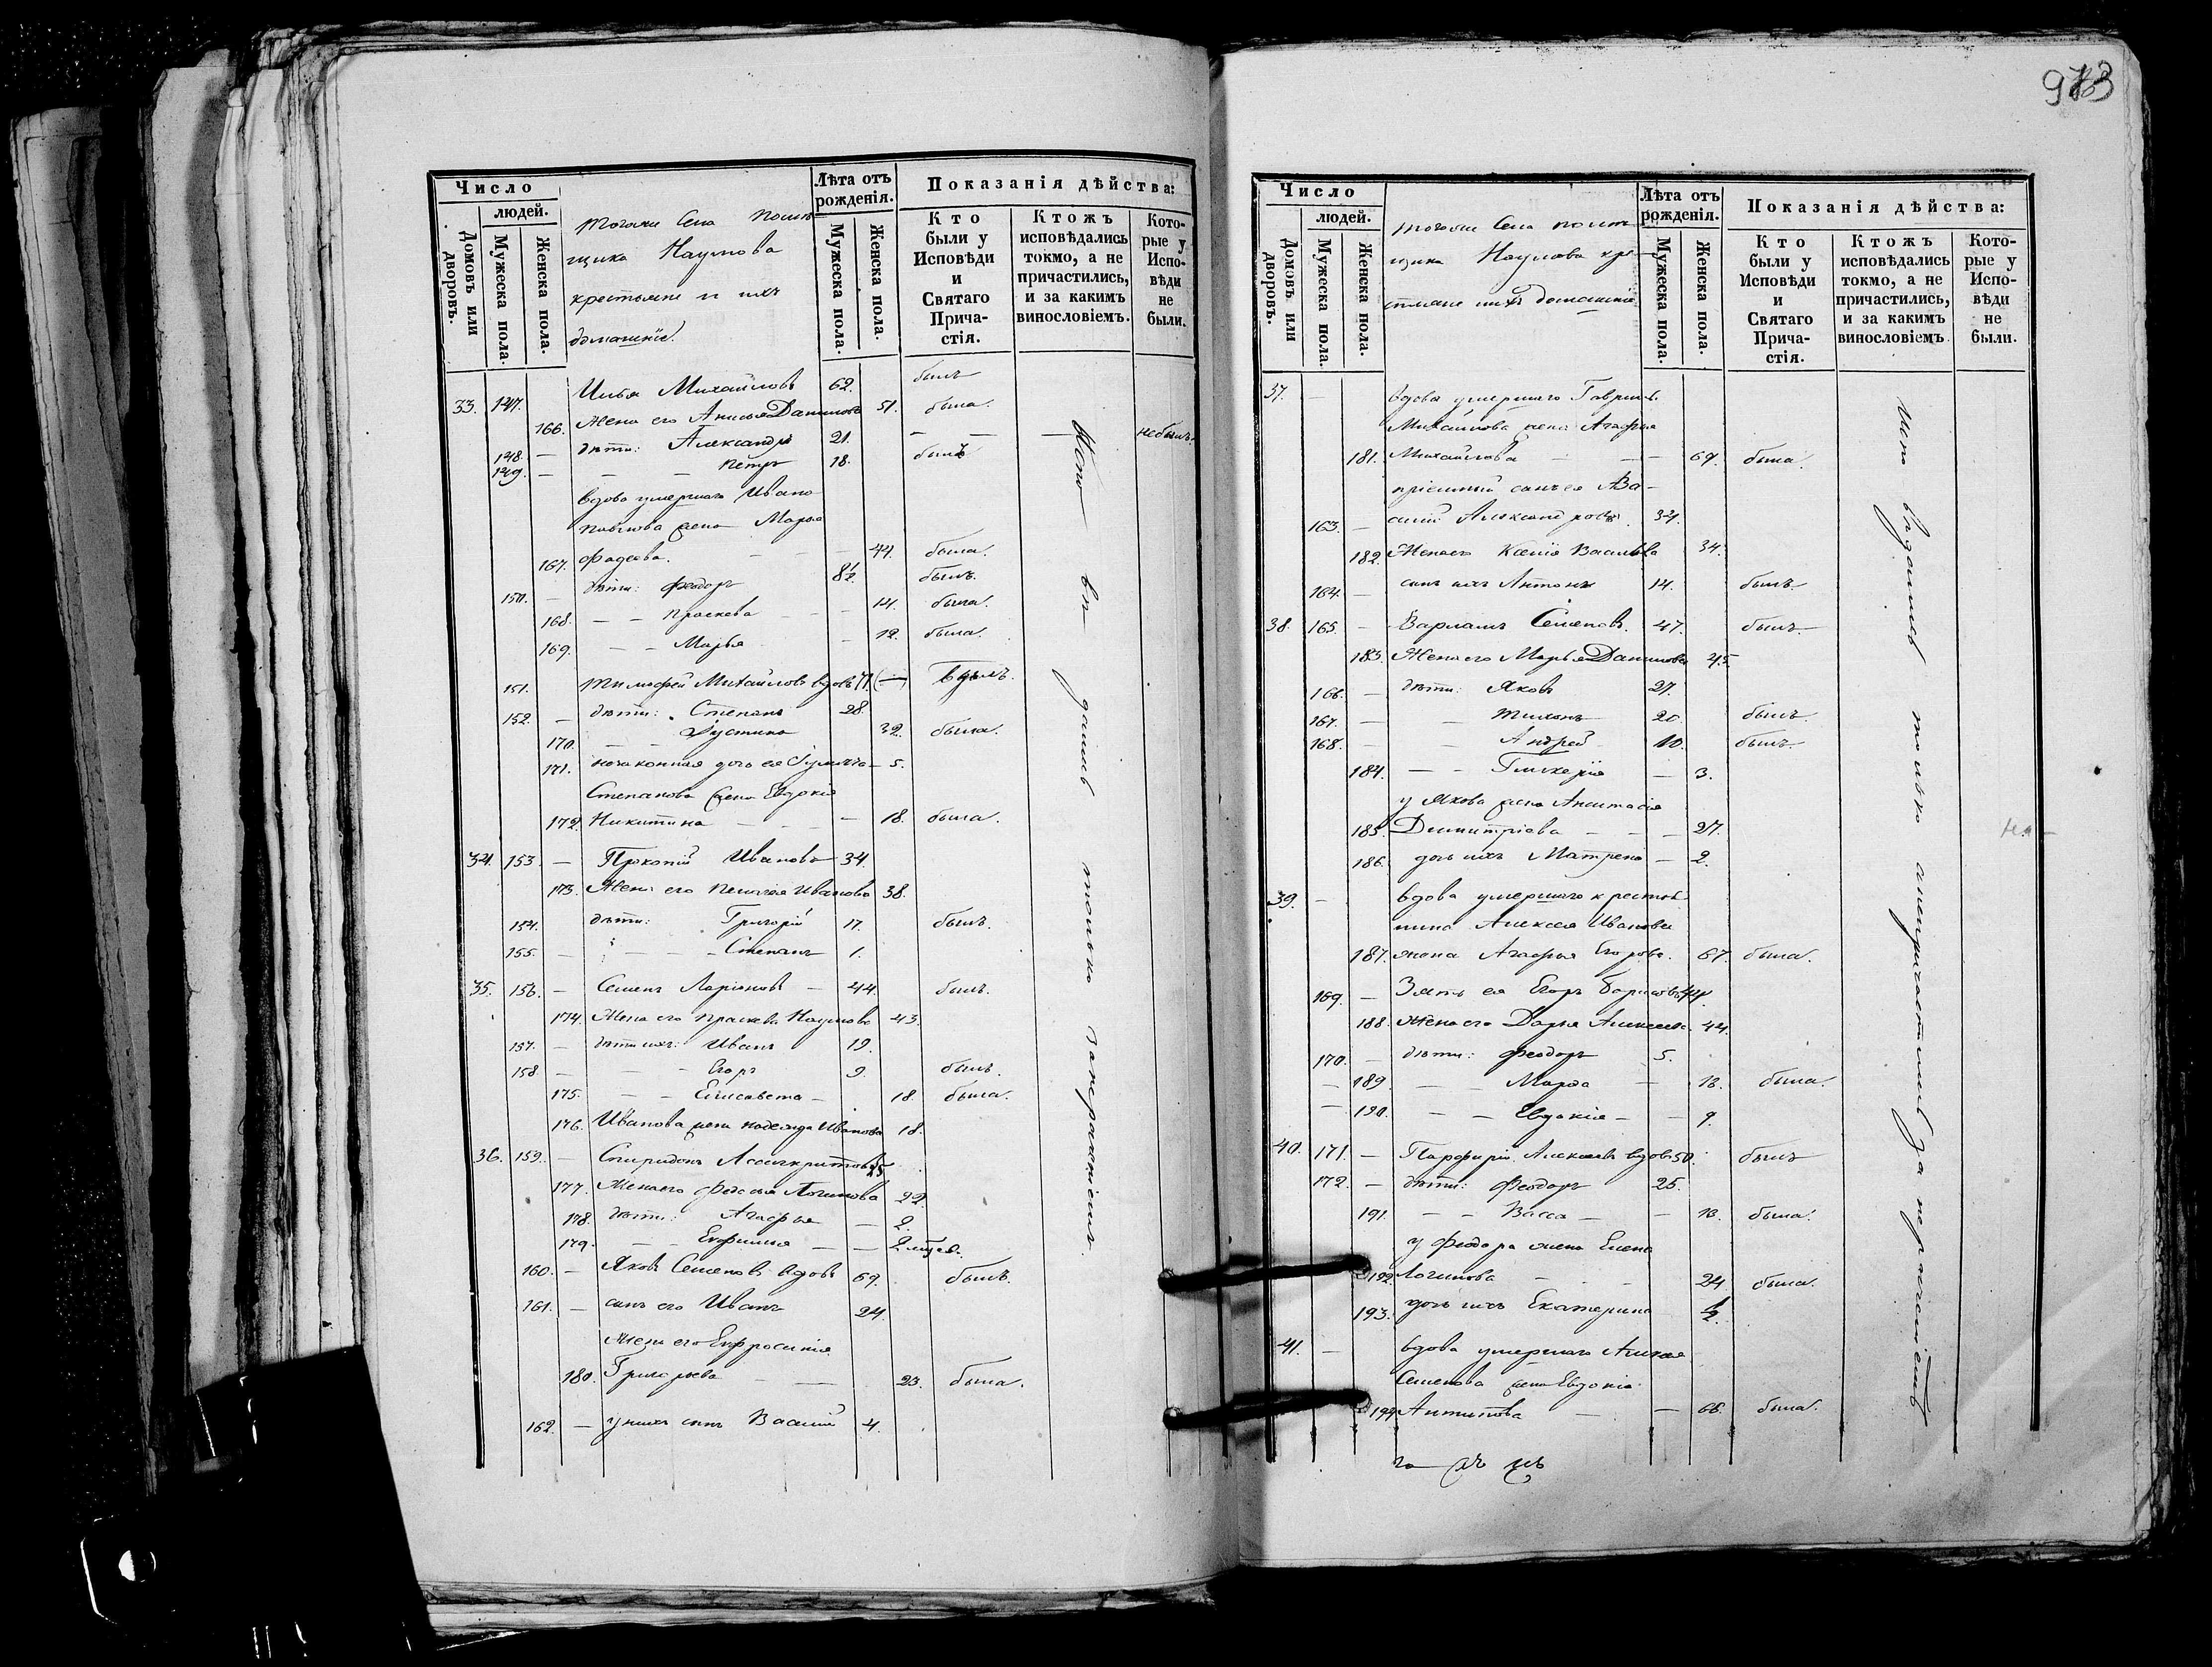 973
Число
людей.
Домовъ или дворовъ.
Мужеска пола.
Женска пола.
Тогоже Села помѣ
щика Наумова
крестьяне и ихъ
домашніе.
Лѣта отъ рожденія.
Мужеска пола.
Женска пола.
Показанія дѣйства:
Кто были у Исповѣди и Святаго Причастія.
Ктожъ исповѣдались токмо, а не причастились, и за какимъ винословіемъ.
Которые у Исповѣди не были.
33. 147. Илья Михайловъ 62. былъ
166. Жена его Анисья Данилова 51. была.
148. — дѣти: Александръ 21. — — — небылъ.
149. — — — Петръ 18. былъ
вдова умершаго Ивана
Павлова жена Марья
167. Фадеева. — — — 44. была.
150. — дѣти: Феодоръ 8½ былъ.
168. — — Праскева — — 14. была.
169. — — Марья — 12. была.
151. Тимофей Михайловъ вдовъ 71. (—) былъ.
152. — дѣти: Степанъ 28.
170. — — Устинья 32. была.
171. незаконная дочь ея — 5.
Степанова жена Евдокія
172. Никитина — — — 18. была.
34. 153. — Прокопій Ивановъ 34.
173. Жена его Пелагея Иванова 38.
154. дѣти: Григорій 17. былъ.
155. — — — Степанъ 1.
35. 156. — Семенъ Ларіоновъ — 44. былъ.
174. Жена его Праскева Наумова 43.
157. — дѣти ихъ: Иванъ 19.
158 — — — Егоръ 9. былъ.
175. — — Елисавета — 18. была.
176. Иванова жена Надежда Иванова 18.
36. 159. — Спиридонъ Асинкритовъ 25
177. Жена его Федосья Логинова 22.
178. дѣти: Агафья — 2.
179. — — Евфимья — — 2 мѣсяц.
160. — Яковъ Семеновъ вдовъ 69. былъ.
161. — сынъ его Иванъ 24.
Жена его Евфросинія
180. Григорьева — — 23. была.
162. — у нихъ сынъ Василій 4.
Кто въ домѣ только за
Число
людей.
Домовъ или дворовъ.
Мужеска пола.
Женска пола.
тогоже Села помѣ
щика Наумова кре
стьяне и ихъ домашніе
Лѣта отъ рожденія.
Мужеска пола.
Женска пола.
Показанія дѣйства:
Кто были у Исповѣди и Святаго Причастія.
Ктожъ исповѣдались токмо, а не причастились, и за какимъ винословіемъ.
Которые у Исповѣди не были.
37. — вдова умершаго Гаврилы
Михайлова жена Агафья
181. Михайлова — — — 69. была.
пріемный сынъ ея Ва-
163. — силій Александровъ. 34.
182. Жена его Ксенія Васильева 34.
164. — сынъ ихъ Антонъ 14. былъ.
38. 165. — Варламъ Семеновъ. 47. былъ.
183. Жена его Марья Данилова 45.
166. — дѣти: Яковъ 27.
167. — — Тихонъ 20. былъ.
168. — — Андрей 10. былъ.
184. — — Гликерія — 3.
у Якова жена Анастасія
185. Димитріева — — — 27.
186. дочь ихъ Матрена — 2.
39. — вдова умершаго крестья
нина Алексея Иванова
187. жена Агафья Егорова. 67. была.
169. — Зять ея Егоръ Борисовъ 44.
188. Жена его Дарья Алексеева. 44.
170. — дѣти: Феодоръ 5.
— 189. — — Марѳа — 13. была.
— 190. — — Евдокія — — 9.
40. 171. — Парфирій Алексеевъ вдовъ 50. былъ
172. — дѣти: Феодоръ 25.
191. — — Васса — — 13. была.
у Феодора жена Елена
192. Логинова — — 24 была.
193. дочь ихъ Екатерина ½
41. — вдова умершаго
Семенова жена Евдокія
194. Антипова — — 66. была.